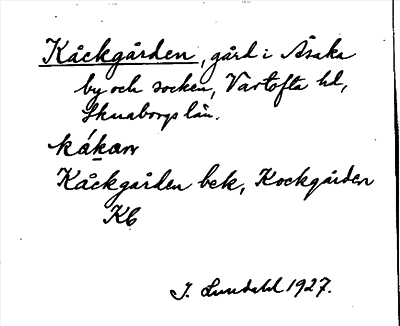 Kåckgården, gård i Åsaka
by och socken, Vartofta hd,
Skaraborgs län.
kǻkaɴ
Kåckgården bek, Kockgården
Kb
I. Lundahl 1927.